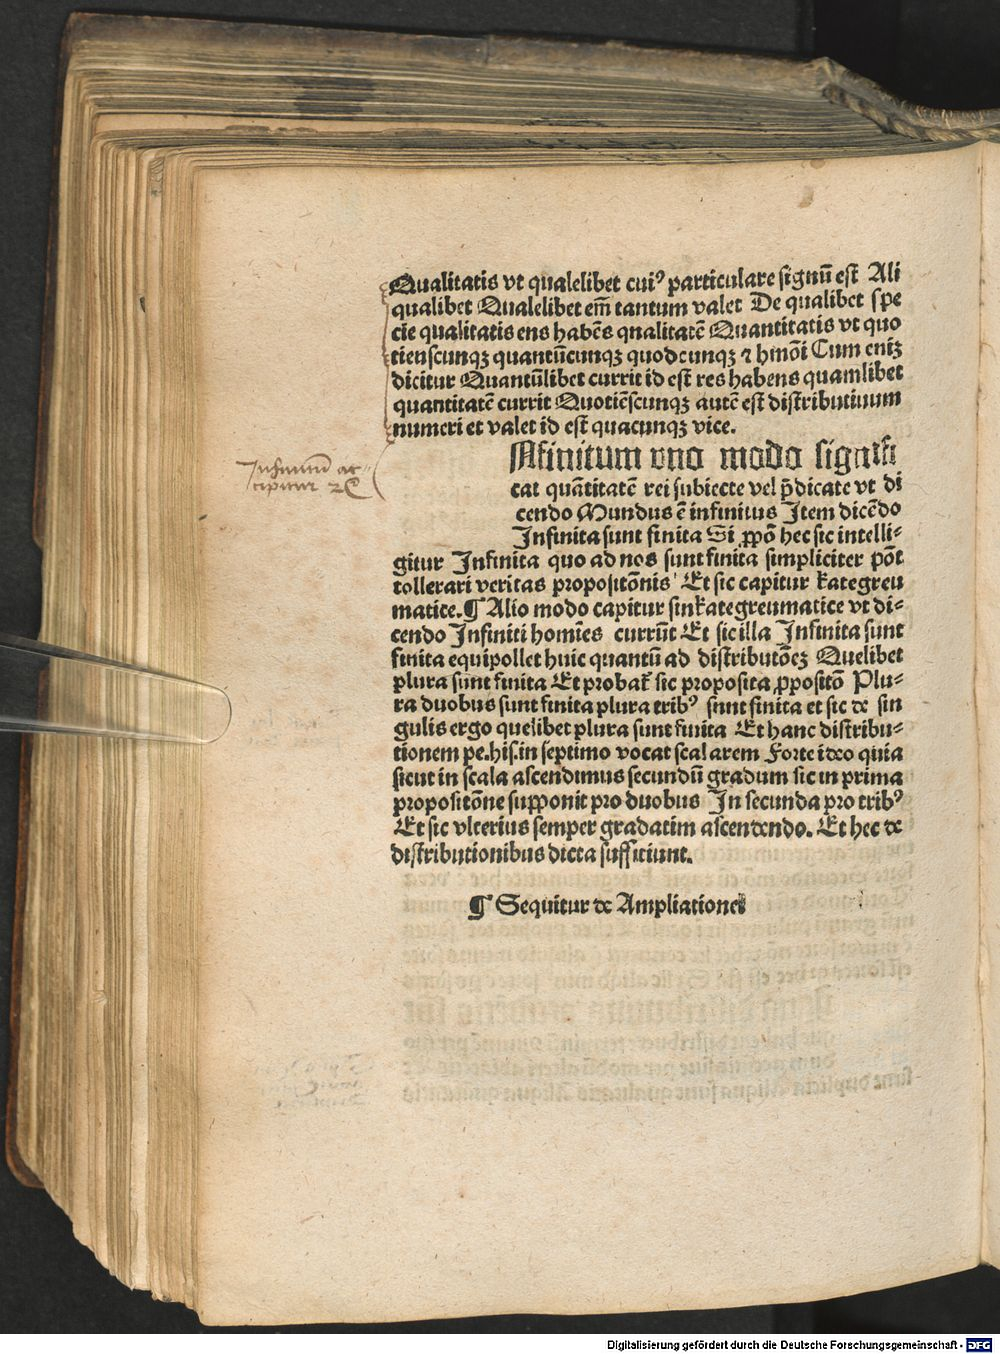 Qualitatis vt qualelibet cuiꝰ particulare signū est Ali
qualibet Qualelibet em̄ tantum valet De qualibet spe
cie qualitatis ens habēs qnalitatē Quantitatis vt quo
tienscunqꝫ quantūcunqꝫ quodcunqꝫ ⁊ hmōi Cum eniꝫ
dicitur Quantūlibet currit id est res habens quamlibet
quantitatē currit Quotiēscunqꝫ autē est distributiuum
numeri et valet id est quacunqꝫ vice.
Nfinitum vno modo signifi
Infinitū ac-
cipitur 2C
cat quātitatē rei subiecte vel p̄dicate vt di
cendo Mundus ē infinitus Item dicēdo
Infinita sunt finita Si ꝓpō hec sic intelli-
gitur Infinita quo ad nos sunt finita simpliciter pōt
tollerari veritas propositōnis Et sic capitur kategreu
matice. ¶ Alio modo capitur sinkategreumatice vt di-
cendo Infiniti homīes currūt Et sic illa Infinita sunt
finita equipollet huic quantū ad distributōeꝫ Quelibet
plura sunt finita Et probat̄ sic proposita ꝓpositō Plu-
ra duobus sunt finita plura tribꝰ sunt finita et sic de sin
gulis ergo quelibet plura sunt finita Et hanc distribu-
tionem pe.his.in septimo vocat scalarem Forte ideo quia
sicut in scala ascendimus secundū gradum sic in prima
propositōne supponit pro duobus In secunda pro tribꝰ
Et sic vlterius semper gradatim ascendendo. Et hec de
distributionibus dicta sufficiunt.
¶ Sequitur de Ampliatione
Digitalisierung gefördert durch die Deutsche Forschungsgemeinschaft - DFG